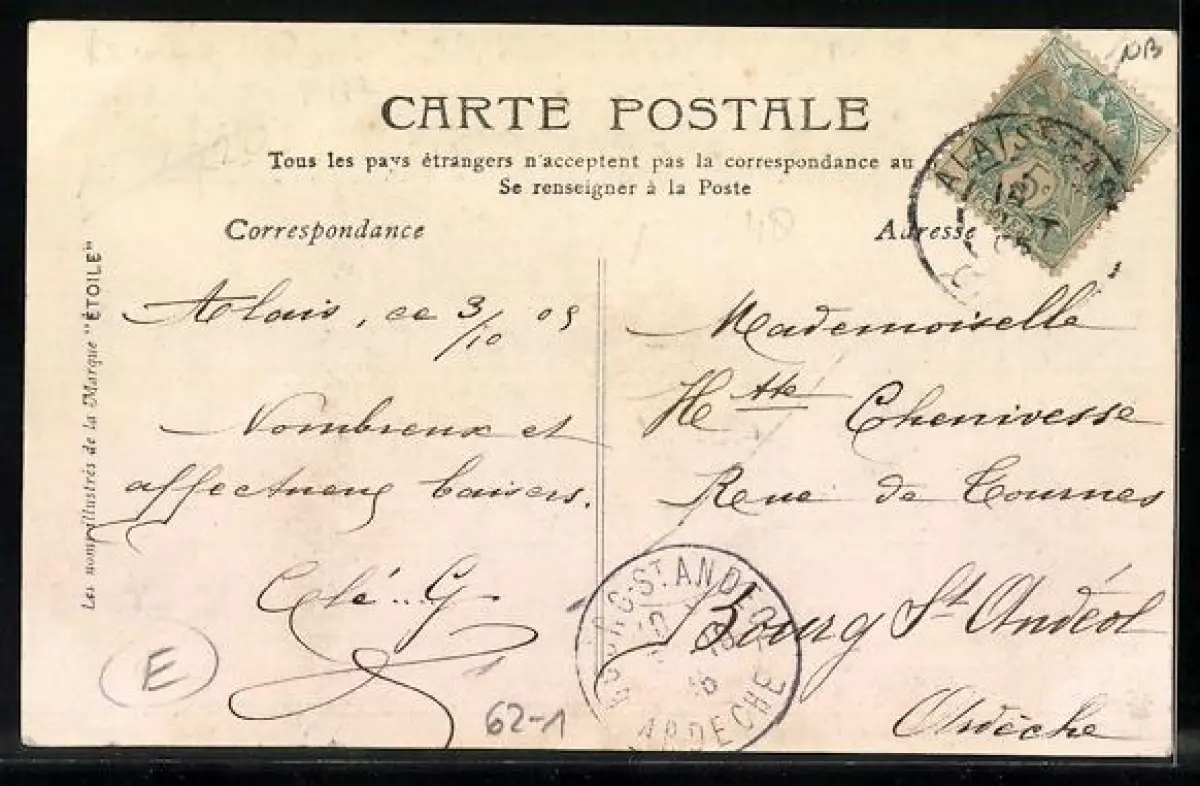 NB
CARTE POSTALE
Tous les pays étrangers n'acceptent pas la correspondance au
Se renseigner à la Poste
Correspondance
Adresse
Alais, ce 3/10 05
Nombreux et
affectueux baisers.
Clé..G
Mademoiselle
Htte Chenivesse
Rue de Tournes
Bourg St Andéol
Ardèche
Les noms illustrés de la Marque "ÉTOILE"
ALAIS
BOURG-ST ANDEOL
ARDECHE
E
62-1
48